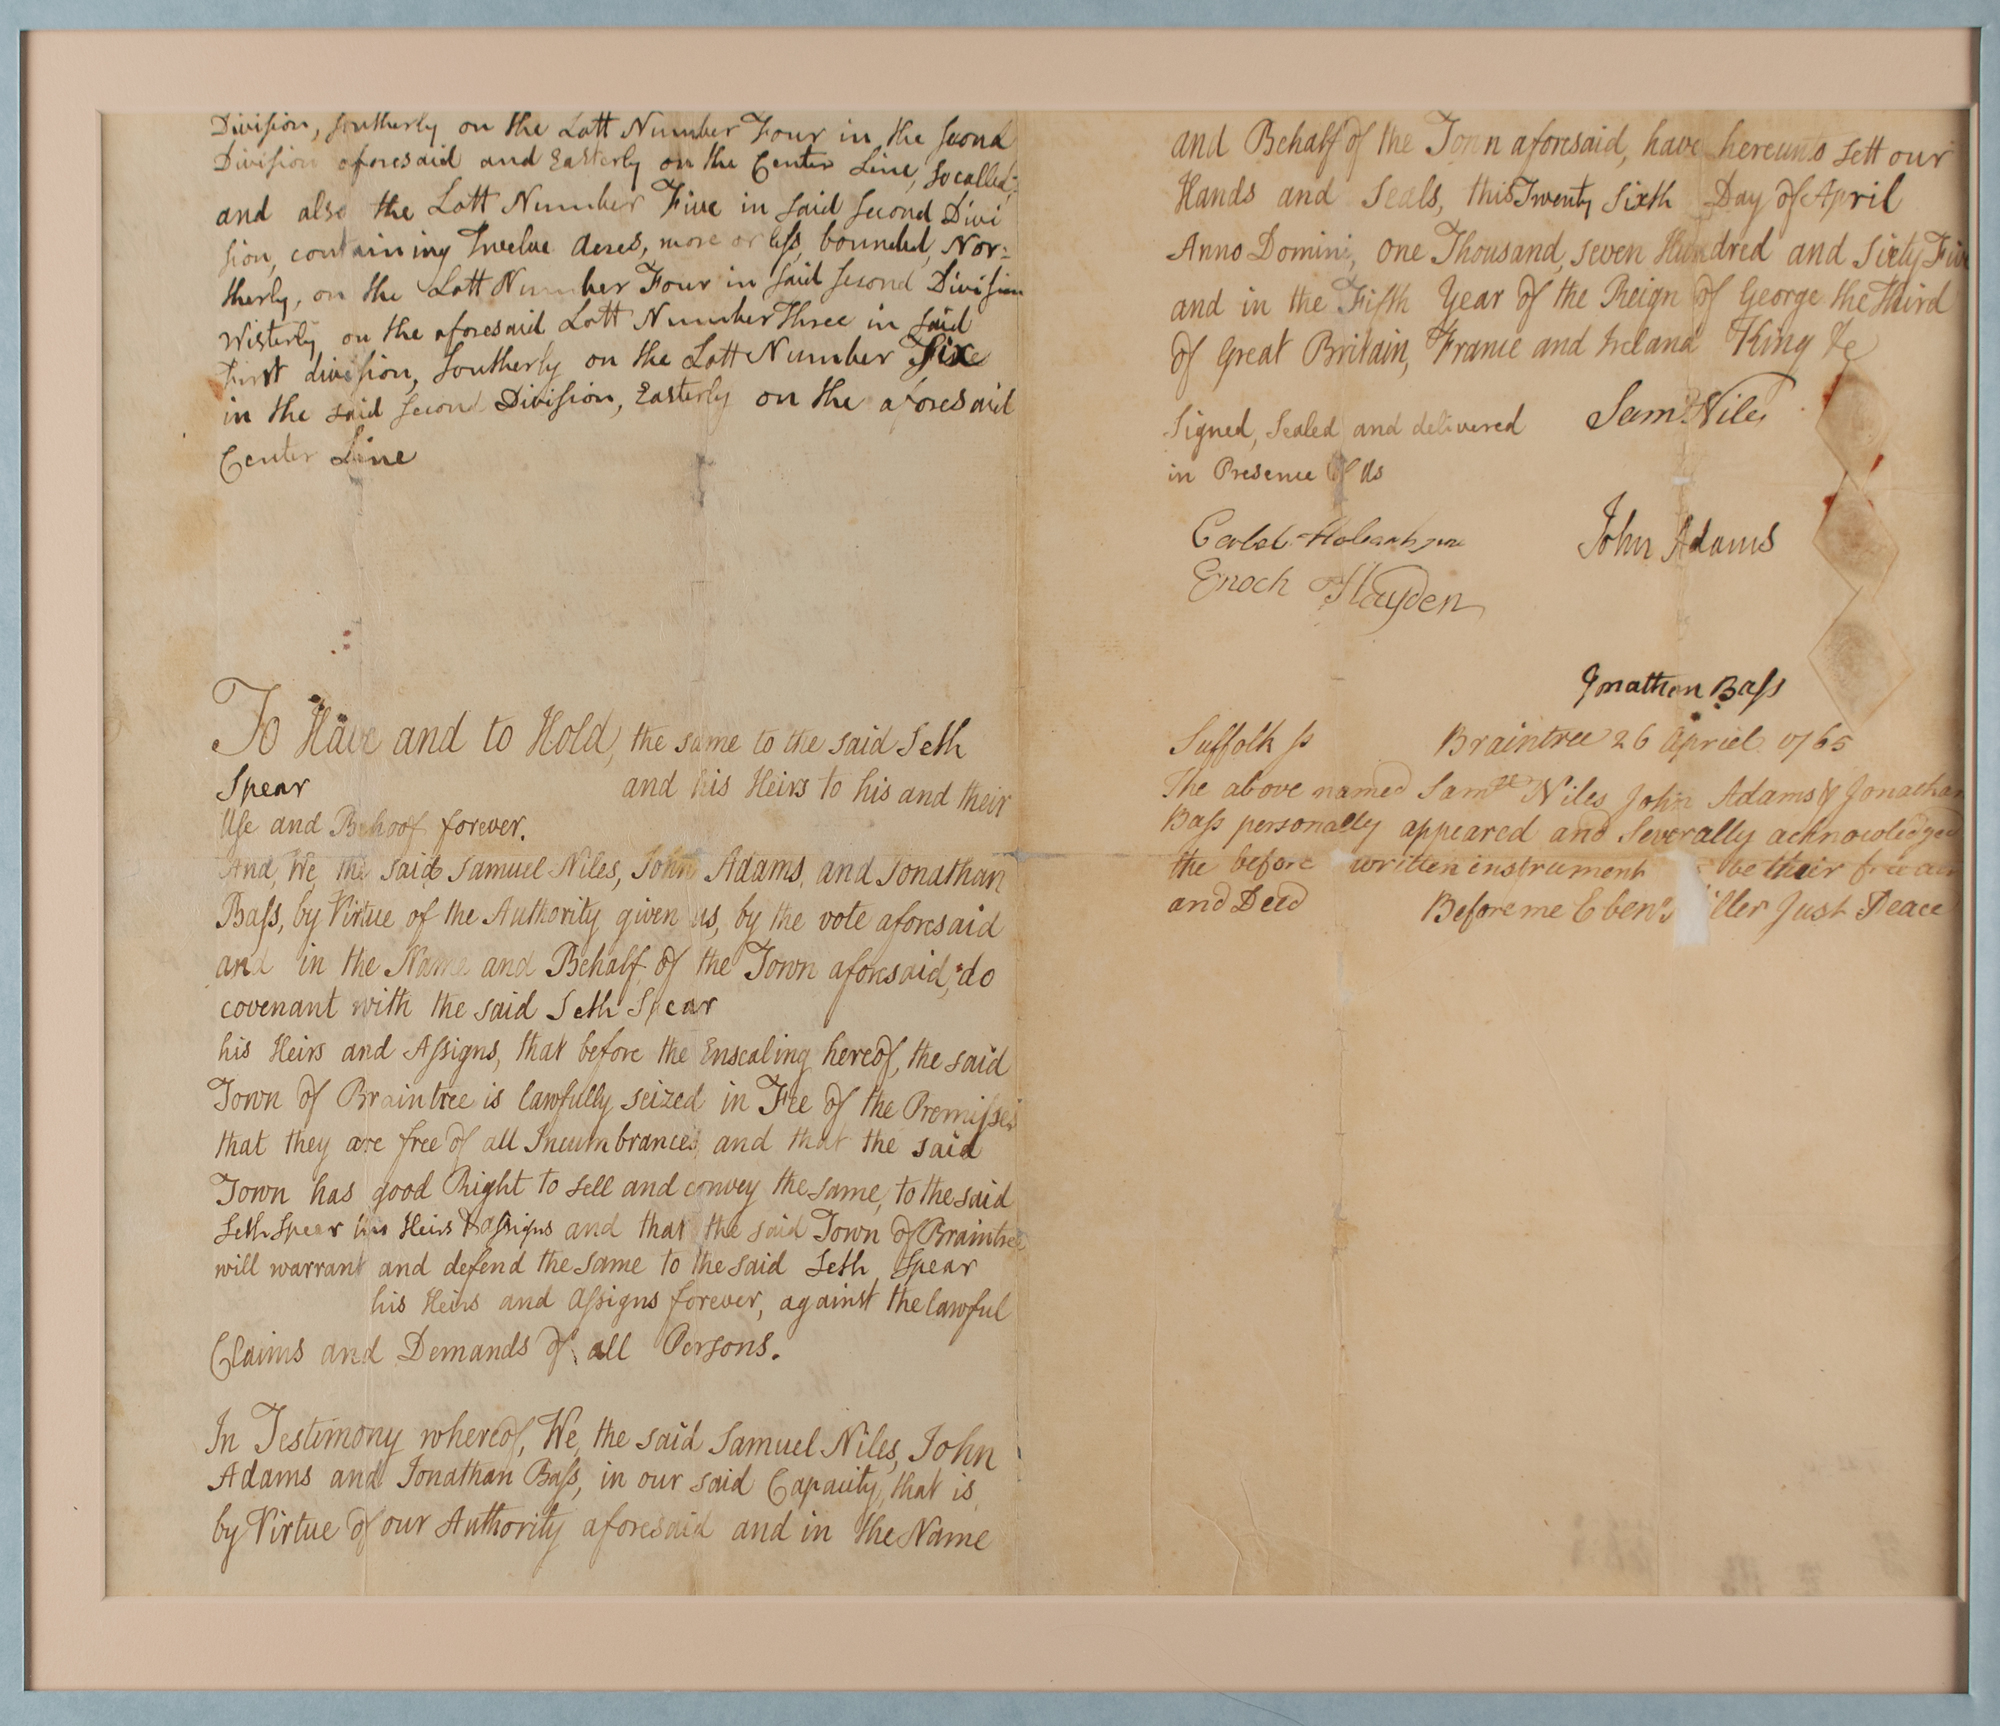 Division, Southerly on the Lott Number Four in the second
Division aforesaid and Easterly on the Center Line, so called;
and also the Lott Number Five in said second Divi
sion, containing Twelve Acres, more or less, bounded, Nor:
therly, on the Lott Number Four in said second Division
Westerly on the aforesaid Lott Number Three in said
First division, Southerly on the Lott Number Six
in the said second Division, Easterly on the aforesaid
Center Line
To Have and to Hold, the same to the said Seth
Spear and his Heirs to his and their
Use and Behoof forever.
And, We the said Samuel Niles, John Adams, and Jonathan
Bass, by Virtue of the Authority given us, by the vote aforesaid
and in the Name and Behalf of the Town aforesaid, do
covenant with the said Seth Spear
his Heirs and Assigns, that before the Ensealing hereof, the said
Town of Braintree is lawfully seized in Fee of the Premisses
that they are free of all Incumbrances and that the said
Town has good Right to sell and convey the same, to the said
Seth Spear his Heirs & assigns and that the said Town of Braintree
will warrant and defend the same to the said Seth Spear
his Heirs and Assigns forever, against the lawful
Claims and Demands of all Persons.
In Testimony whereof, We, the said Samuel Niles, John
Adams and Jonathan Bass, in our said Capacity, that is,
by Virtue of our Authority aforesaid and in the Name
and Behalf of the Town aforesaid, have hereunto sett our
Hands and Seals, this Twenty Sixth Day of April
Anno Domini, One Thousand, seven Hundred and Sixty Five
and in the Fifth Year of the Reign of George the third
of Great Britain, France and Ireland King &c
Signed, Sealed and delivered
in Presence of Us
Sam.ll Niles
Caleb Hobart jun
John Adams
Enoch Hayden
Jonathan Bass
Suffolk ss Braintree 26 Apriel 1765
The above named Samll Niles John Adams & Jonathan
Bass personally appeared and Severally acknowledged
the before written instrument be their free act
and Deed Before me Eben.r iller Just Peace